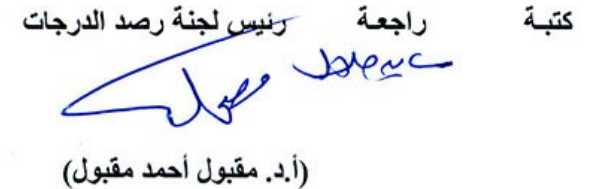 كتبـة راجعـة رئيس لجنة رصد الدرجات
(أ.د. مقبول أحمد مقبول)